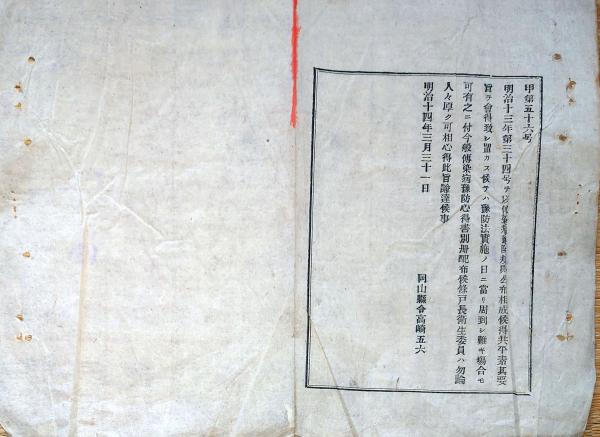 甲第五十六号
明治十三年第三十四号ヲ以傳染病豫防規則公布相成候得共平素其要
旨ヲ會得致シ置カス候テハ豫防法實施ノ日ニ當リ周到シ難キ場合モ
可有之ニ付今般傳染病豫防心得書別冊配布候條戸長衛生委員ハ勿論
人々厚ク可相心得此旨諭達候事
明治十四年三月三十一日
岡山縣令高崎五六